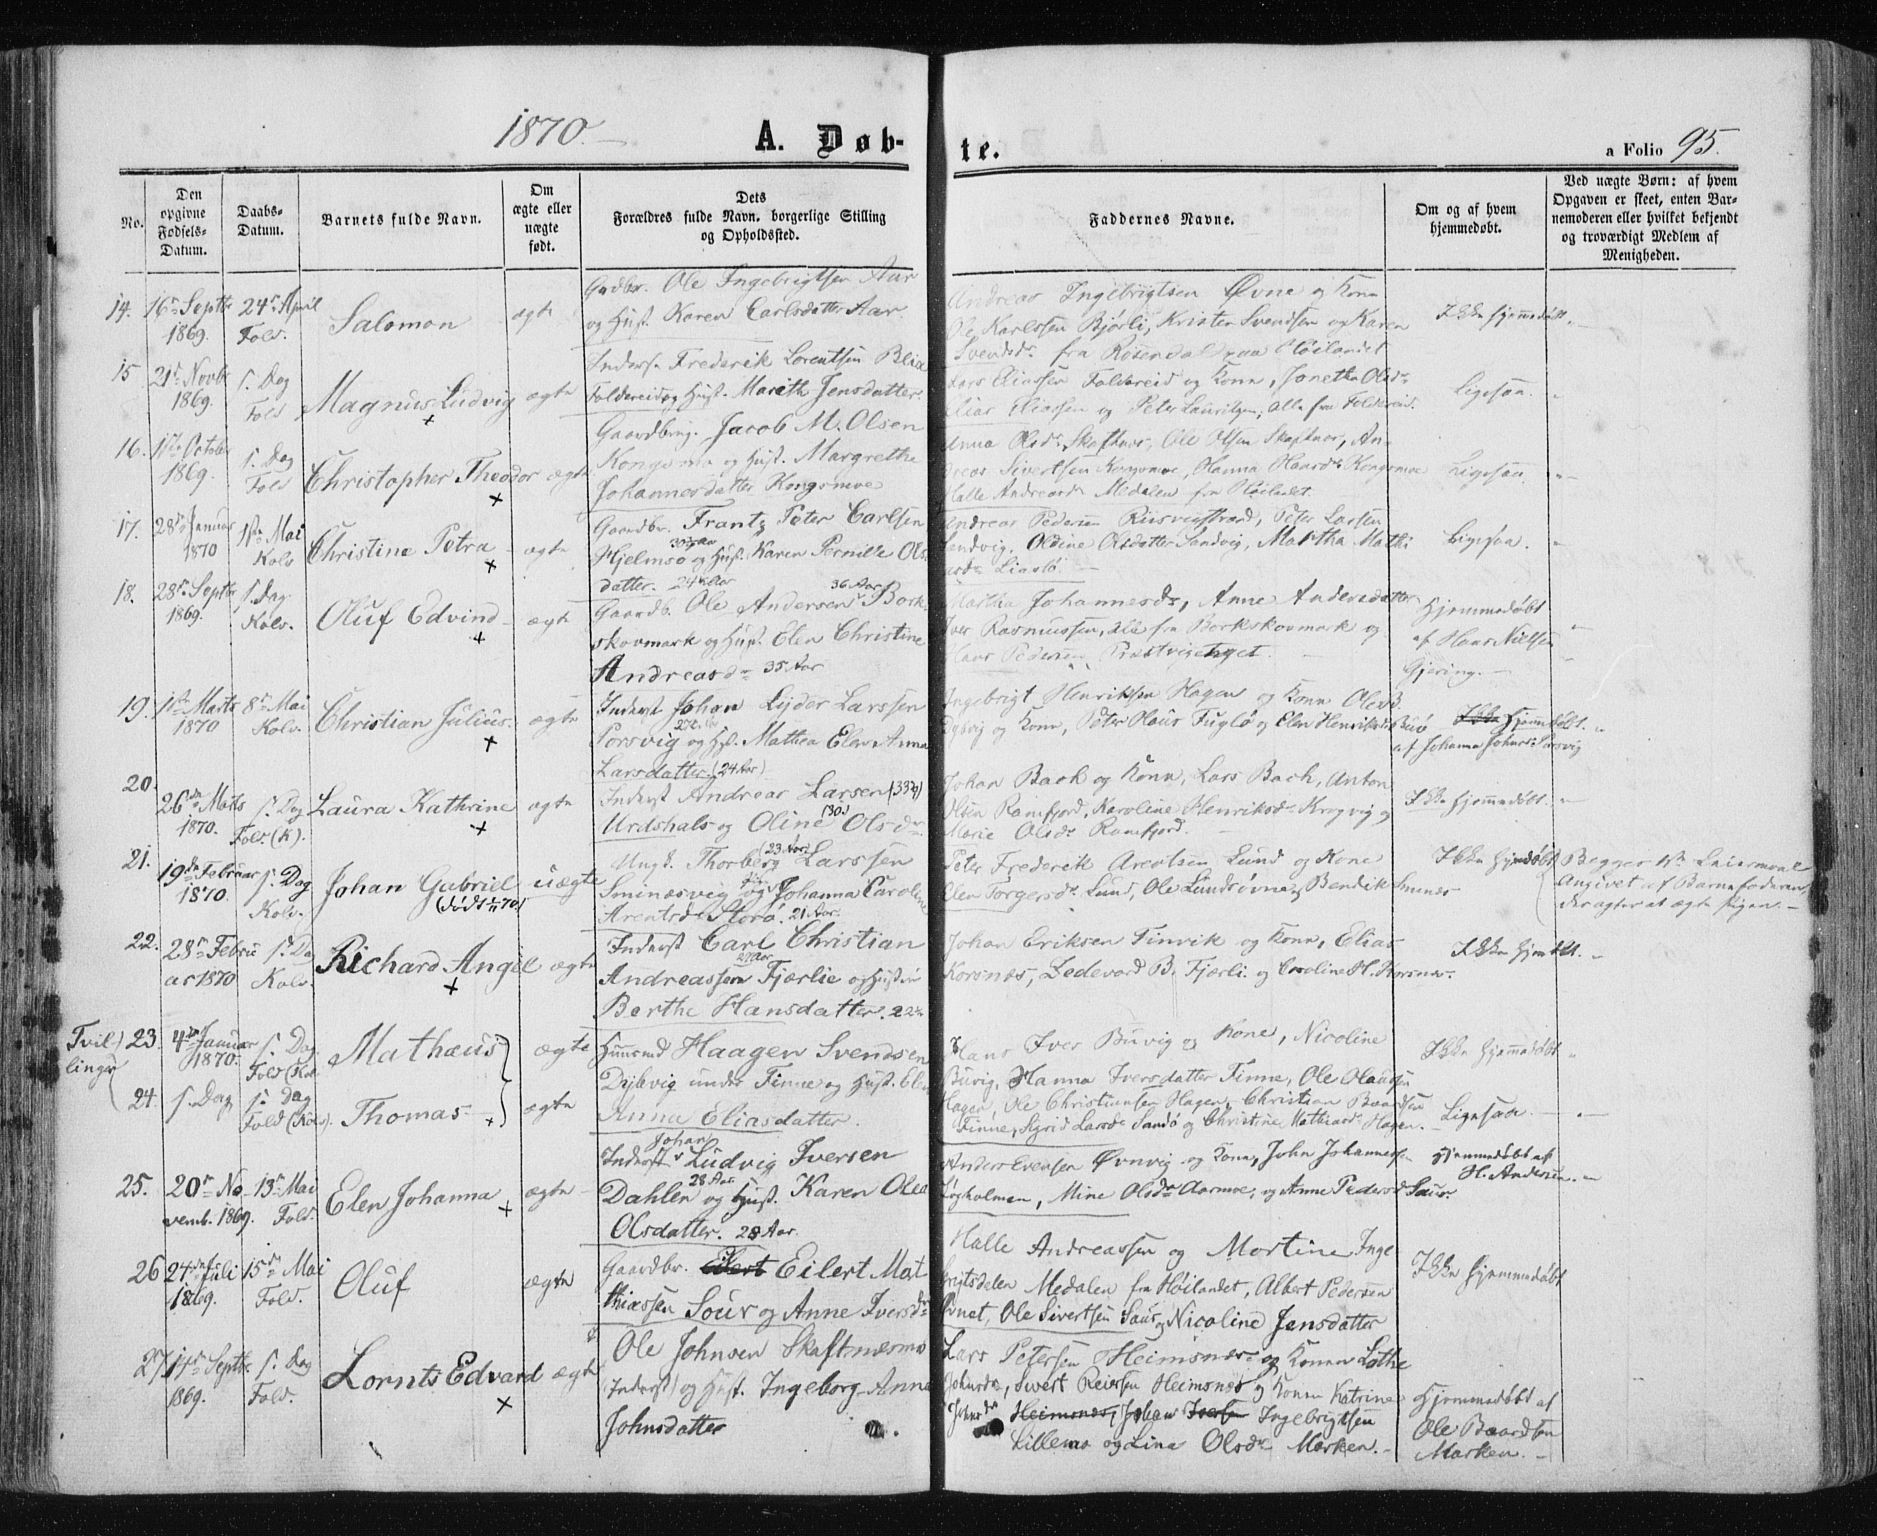 1870.
A. Døb-
te.
a Folio 95.
No.
Den opgivne Fødsels-Datum.
Daabs-Datum.
Barnets fulde Navn.
Om ægte eller uægte født.
Dets Forældres fulde Navn, borgerlige Stilling og Opholdssted.
Faddernes Navne.
Om og af hvem hjemmedøbt.
Ved uægte Børn: af hvem Opgaven er skeet, enten Barnemoderen eller hvilket bekjendt og troværdigt Medlem af Menigheden.
14. 16de Septbr 1869. 24de April Fold. Salomon ægte
Gaardbr. Ole Ingebrigtsen Aar
og Hust. Karen Carlsdatter Aar
Andreas Ingebrigtsen Øvne og Kone
Ole Karlssen Bjørli, Kristen Svendsen og Karen
Svendsdr fra Rosendal paa Høilandet
Ikke hjemmedøbt
15 21de Novbr 1869. s. Dag Fold Magnus Ludvig ægte
Inderst Frederik Lorentsen
Foldereid og Hust. Marith Jensdatter
Lars Eliassen Foldereid og Kone, Jonetha Olsdr
Elias Eliassen og Peter Lauritzen, alle fra Foldereid.
Ligesaa.
16. October 1869. s. Dag Fold Christopher Theodor ægte
Gaardbrug. Jacob M. Olsen
Kongsmo og Hust. Margrethe
Johannesdatter Kongsmoe
Anna Olsdr Skaftnes, Ole Olsen Skaftnes, An-
dreas Sivertsen Kongsmoe, Hanna Kongsmoe
Halle Andreasdr Medalen fra Høilandet.
Ligesaa.
17. 28de Januar 1870 1ste Mai Kolv Christine Petra ægte
Gaardbr. Frantz Peter Carlsen
Hjelmsø og Hust. Karen Pernille Ols-
datter. 24 Aar
Andreas Pedersen, Peter Larsen
Sandvig, Oldine Olsdatter Sandvig, Martha Mathi
asdr
Ligesaa.
18. 28de Septbr 1869. s. Dag Kolv. Oluf Edvind ægte
Gaardb. Ole Andersen 36 Aar Bork-
skovmark og Hust. Elen Christine
Andreasdr 35 Aar
Martha Johannesdr, Anne Andersdatter
Iver Rasmussen, alle fra Borkskovmark og
Hans Pedersen
Hjemmedøbt
af Hans Nielsen
Gjering.
19. 1ste Marts 1870 8de Mai Kolv. Christian Julius ægte
Inderst Johan Lyder Larssen
Porsvig og Hust. Mathea Elen Anna
Larsdatter. (24 Aar)
Ingebrigt Henriksen Hagen og Kone Ole B.
Dybvig og Kone, Peter Hans Fuglø og Elen Henriksdr Buvø
Ikke hjemmedøbt.
af Johanna
20. 26de Marts 1870. s. Dag Fold. (K). Laura Kathrine ægte
Inderst Andreas Larsen (33)
Urdshals og Oline (30) Olsdr
Johan Bach og Kone, Lars Bach, Anton
Olsen Ramfjord, Karoline Henriksdr Krogvig og
Marie Olsdr Ramfjord.
Ikke hjemmedøbt.
21. 19de Februar 1870. s. Dag Kolv. Johan Gabriel uægte
Ungk. Thorberg (23 Aar) Larssen
Sminæsvig og Johanna Caroline
Arentsdr Storø. 21 Aar.
Peter Frederik Arentsen Lund og Kone
Elen Torgersdr Lund, Ole Lundsøvne, Bendik Smines
Ikke hjemdøbt
Begges 1ste Leiermaal
Angivet af Barnefaderen
der agter at ægte Pigen.
22. 28de Februar 1870 s. Dag Kolv. Richard Angel ægte
Inderst Carl Christian
Andreassen Fjærlie og Hustru
Berthe Hansdatter. 22
Johan Eriksen Finvik og Kone, Elias
Korsnæs, Zedevard B. Fjærli og Caroline H. Korsnæs.
Ikke hjemdøbt.
Tvil-
linger
23. 4de Januar 1870. s. Dag Fold (Kolv Mathæus ægte
Huusmd Haagen Svendsen
Dybvig under Finne og Hust. Elen
Hans Iver Buvig og Kone, Nicoline
Buvig, Hanna Iversdatter Finne, Ole Olaussen
Ikke hjemmedøbt
24. s. Dag s. Dag Fold (Kolv). Thomas ægte
Anna Eliasdatter.
Hagen, Ole Christiansen Hagen, Christian Baardsen
Finne, Sigrid Larsdr Sandø og Christine Mathiasdr Hagen.
Ligesaa.
25. 20de Novemb. 1869. 13de Mai Fold. Elen Johanna ægte
Inderst Johan Ludvig Iversen
Dahlen 28 Aar og Hust. Karen Olea
Olsdatter. 28 Aar.
Anders Evensen Øvnvig og Kone, John Johannessen
Løgholmen, Mine Olsdr Aarmoe, og Anne Pedersd Saur.
Hjemmedøbt af
H. Andersen.
26 24de Juli 1869. 15de Mai Fold. Oluf ægte
Gaardbr. Eilert Mat
thiassen Sour og Anne Iversdr
Halle Andreassen og Mortine Inge
brigtsdalen Medalen fra Høilandet, Albert Pedersen
Ole Sivertsen Saur og Nicoline Jensdatter
Ikke hjemmedøbt
27. Septbr. 1869. s. Dag Fold. Lornts Edvard ægte
Ole Johnsen Skaftnæsmo
(Inderst) og Hust. Ingeborg Anna
Johnsdatter
Lars Petersen Heimsnæs og Konen Lothe
Johnsdr, Sivert Reiersen Heimsnæs og Konen Katrine
Johnsdr Heimsnæs, Johan Iversen Ingebrigtsen
Lillemo og Lina Olsdr Marken.
Hjemmedøbt af
Ole Baardsen
Marken.